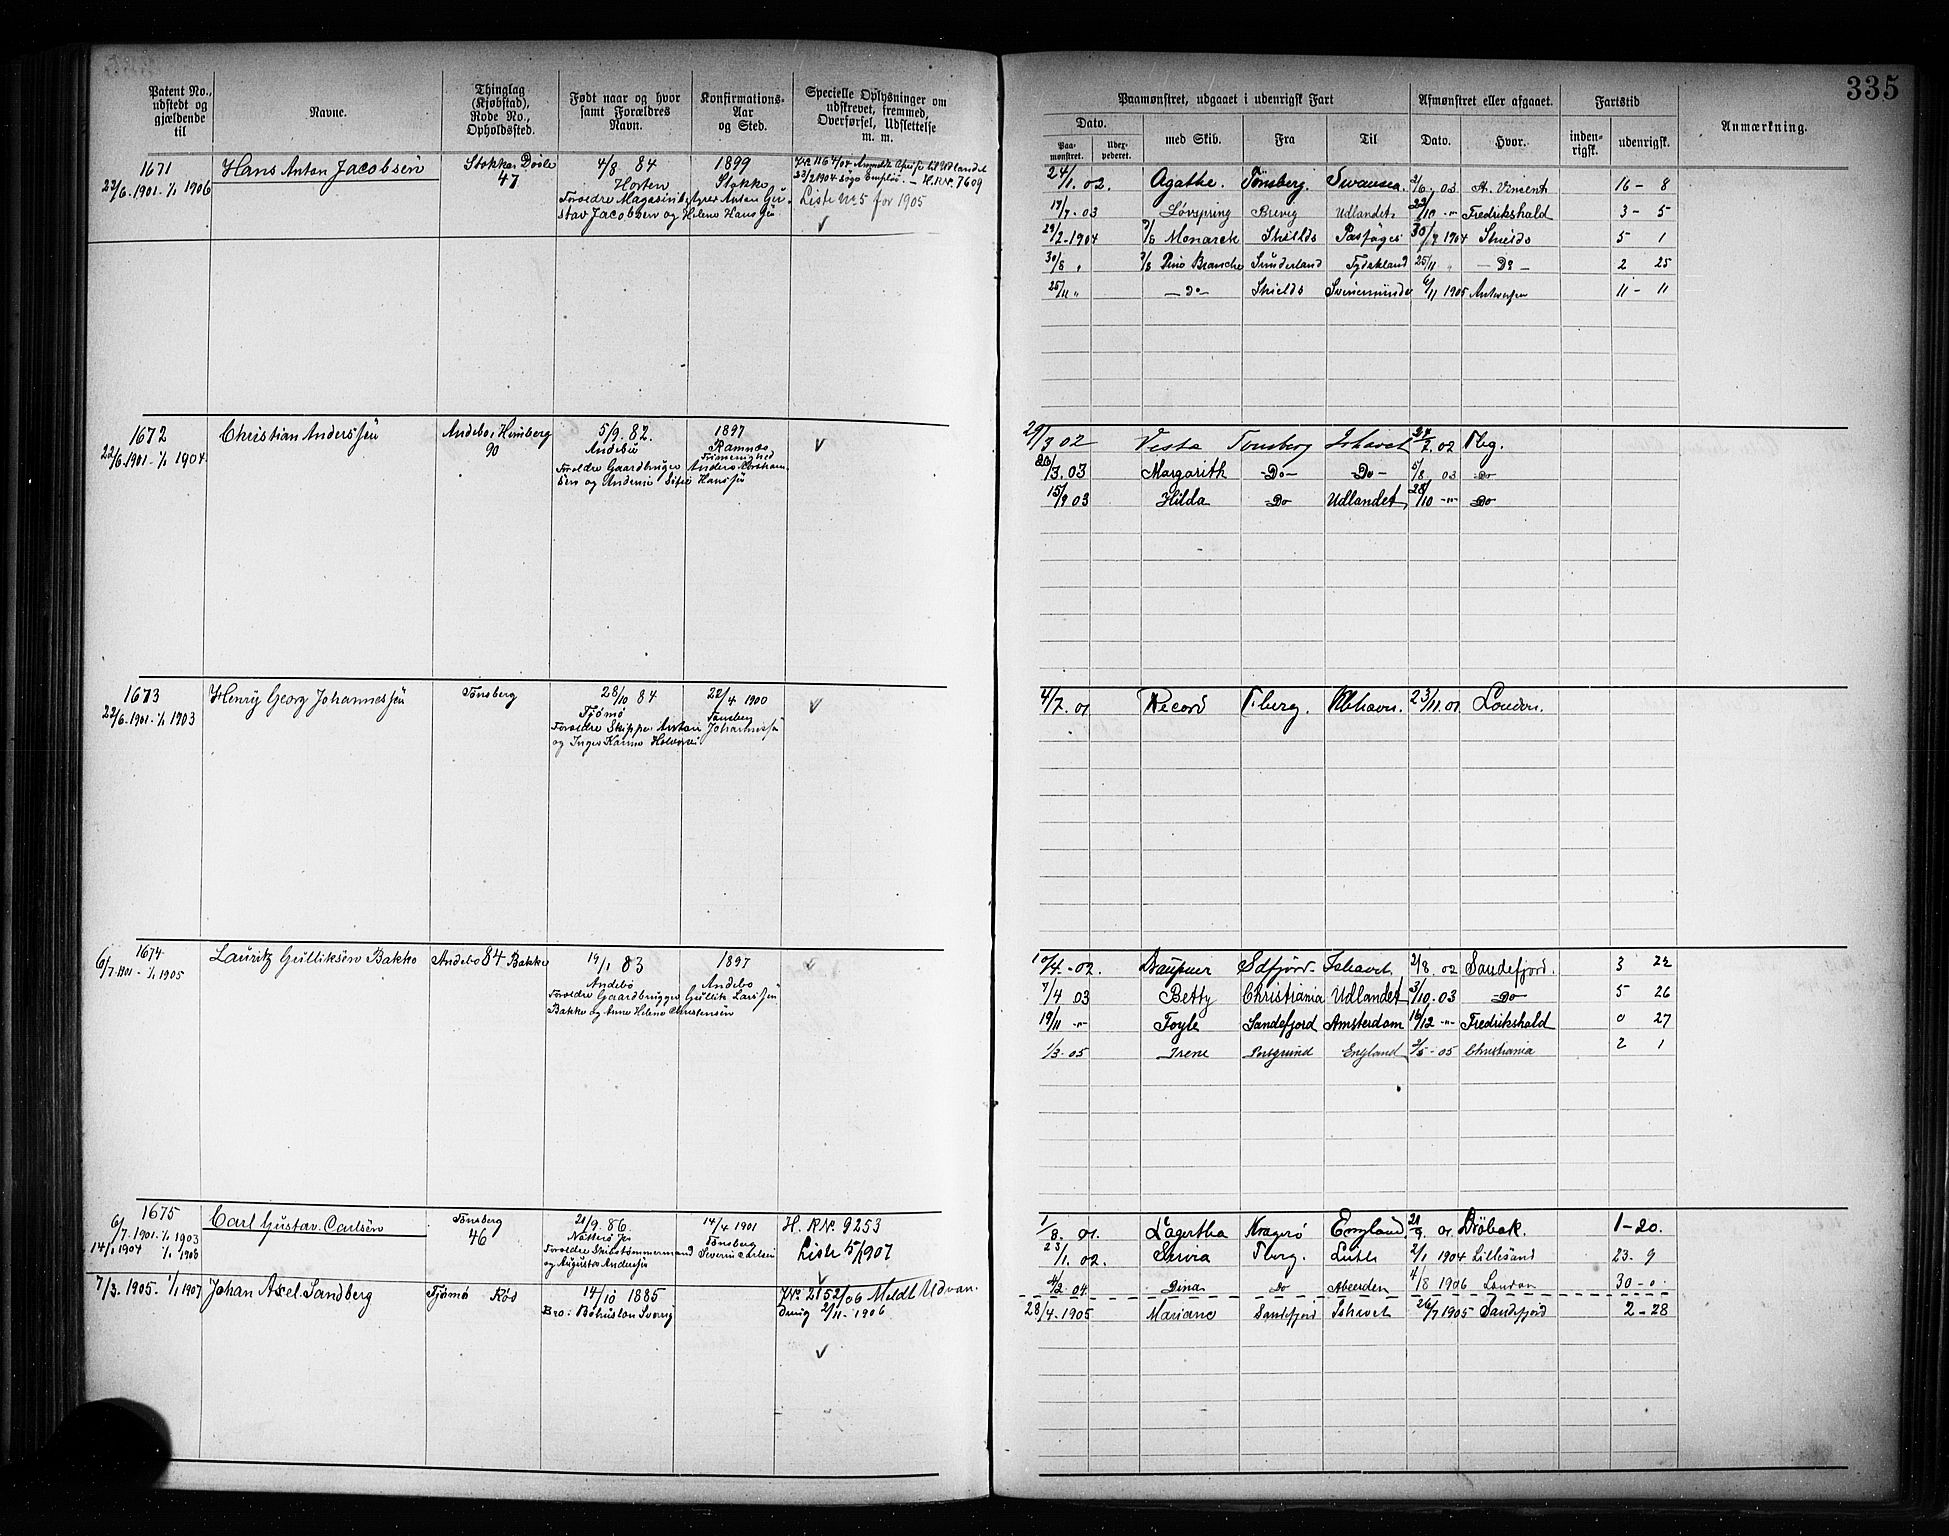 335
Patent No., udstedt og gjældende til
Navne.
Thinglag (Kjøbstad), Rode No., Opholdssted.
Født naar og hvor samt Forældres Navn.
Konfirmations-Aar og Sted.
Specielle Oplysninger om udskrevet, fremmed, Overførsel, Udslettelse m. m.
Paamønstret, udgaaet i udenrigsk Fart
Afmønstret eller afgaaet.
Fartstid
Anmærkning.
Dato.
Paa-mønstret.
med Skib.
Fra
Til
Dato.
Hvor.
inden-rigsk.
udenrigsk.
1671
22/6 1901 - 1/1 1906
Hans Anton Jacobsen
Stokke
47
4/8 84
Horten
Forældre Magasinbestyrer Anton Gustav Jacobsen og Helene Hanssen
1899
Stokke
H.R.Nr. 7609
Liste No 5 for 1905
24/1. 02. Agathe. Tønsberg. Swansea. 03 St. Vincent 16 - 8
17/7 - 03 Løvspring Brevig Udlandet 22/10 -"- Fredrikshald 3 - 5
29/2 - 1904 Monarck Shields 30/4 1904 Shields 5 1
30/8 " Pino Branche Sunderland Tydskland 25/11 " - Do - 2 25
25/11 " - Do - Shields Svinemünde 6/11 1905 Antwerpen 11 - 11
1672
22/6 1901 - 1/1 1904
Christian Anderssen
Andebo, Himberg
90
5/9. 82.
Andebu
Forældre Gaardbruger Anders Abrahamsen og Andrine Sofie Hanssen
1897
Ramnæs
Frimenighed
29/3 02 Vesta Tønsberg Ishavet 02 Tbg.
3. 03 Margarith - Do - - Do - 5/8 03 Do
15/9 03 Hilda Do Udlandet 28/10 -"- Do
1673
22/6 1901 - 1/1 1903
Henry Georg Johannessen
Tønsberg
28/10 84
Tjømø
Forældre Skipper Anton Johannessen
og Inger Karine
22/4 1900
Tønsberg
4/7. 01 Record T.berg. Kbhavn. 23/11 01. London.
1674
6/7 1901 - 1/1 1905
Lauritz Gulliksen Bakke
Andebo 84 Bakke
19/1 83
Andebo
Forældre Gaardbruger Gullik Larssen
Bakke og Anne Helene Christensen
1897
Andebo
10/4. - 02. Draupner Sdfjørd. Ishavet 2/8. 02 Sandefjord. 3 22
7/4 03 Betty Christiania Udlandet 3/10. 03 Do 5 26
19/11 -"- Foyle Sandefjord Amsterdam 16/12 -"- Fredrikshald 0 27
1/3. 05 Irene Porsgrund England 2/5 - 05 Christiania 2 1
1675
6/7. 1901. 1/1 1903
14/1 1904 1/1 1906
Carl Gustav Carlsen
Tønsberg
46
21/9. 86.
Nøtterø
Forældre Skibstømmermand Severin Carlsen
og Augusta Andersen
14/4 1901
Tønsberg
H. R No. 9253
Liste 5/1907
1/8. 01. Lagertha Kragerø England 21/9 01 Drøbak. 1 - 20.
23/1. 02. Tberg. Leith 2/1 1904 Lillesand 23. 9
2. 04 Dina Do Aberdeen 4/8 1906 London 30 - 0.
7/3. 1905. 1/1 1907
Johan Axel Sandberg
Tjømø Rød
14/10 1885
Bro: Bohuslan Sverig
Nr. 2152/06 Meldt Udvandring 2/11 - 1906
28/4 - 1905 Mariane Sandefjord Ishavet 26/7 1905 Sandefjord 2 - 28